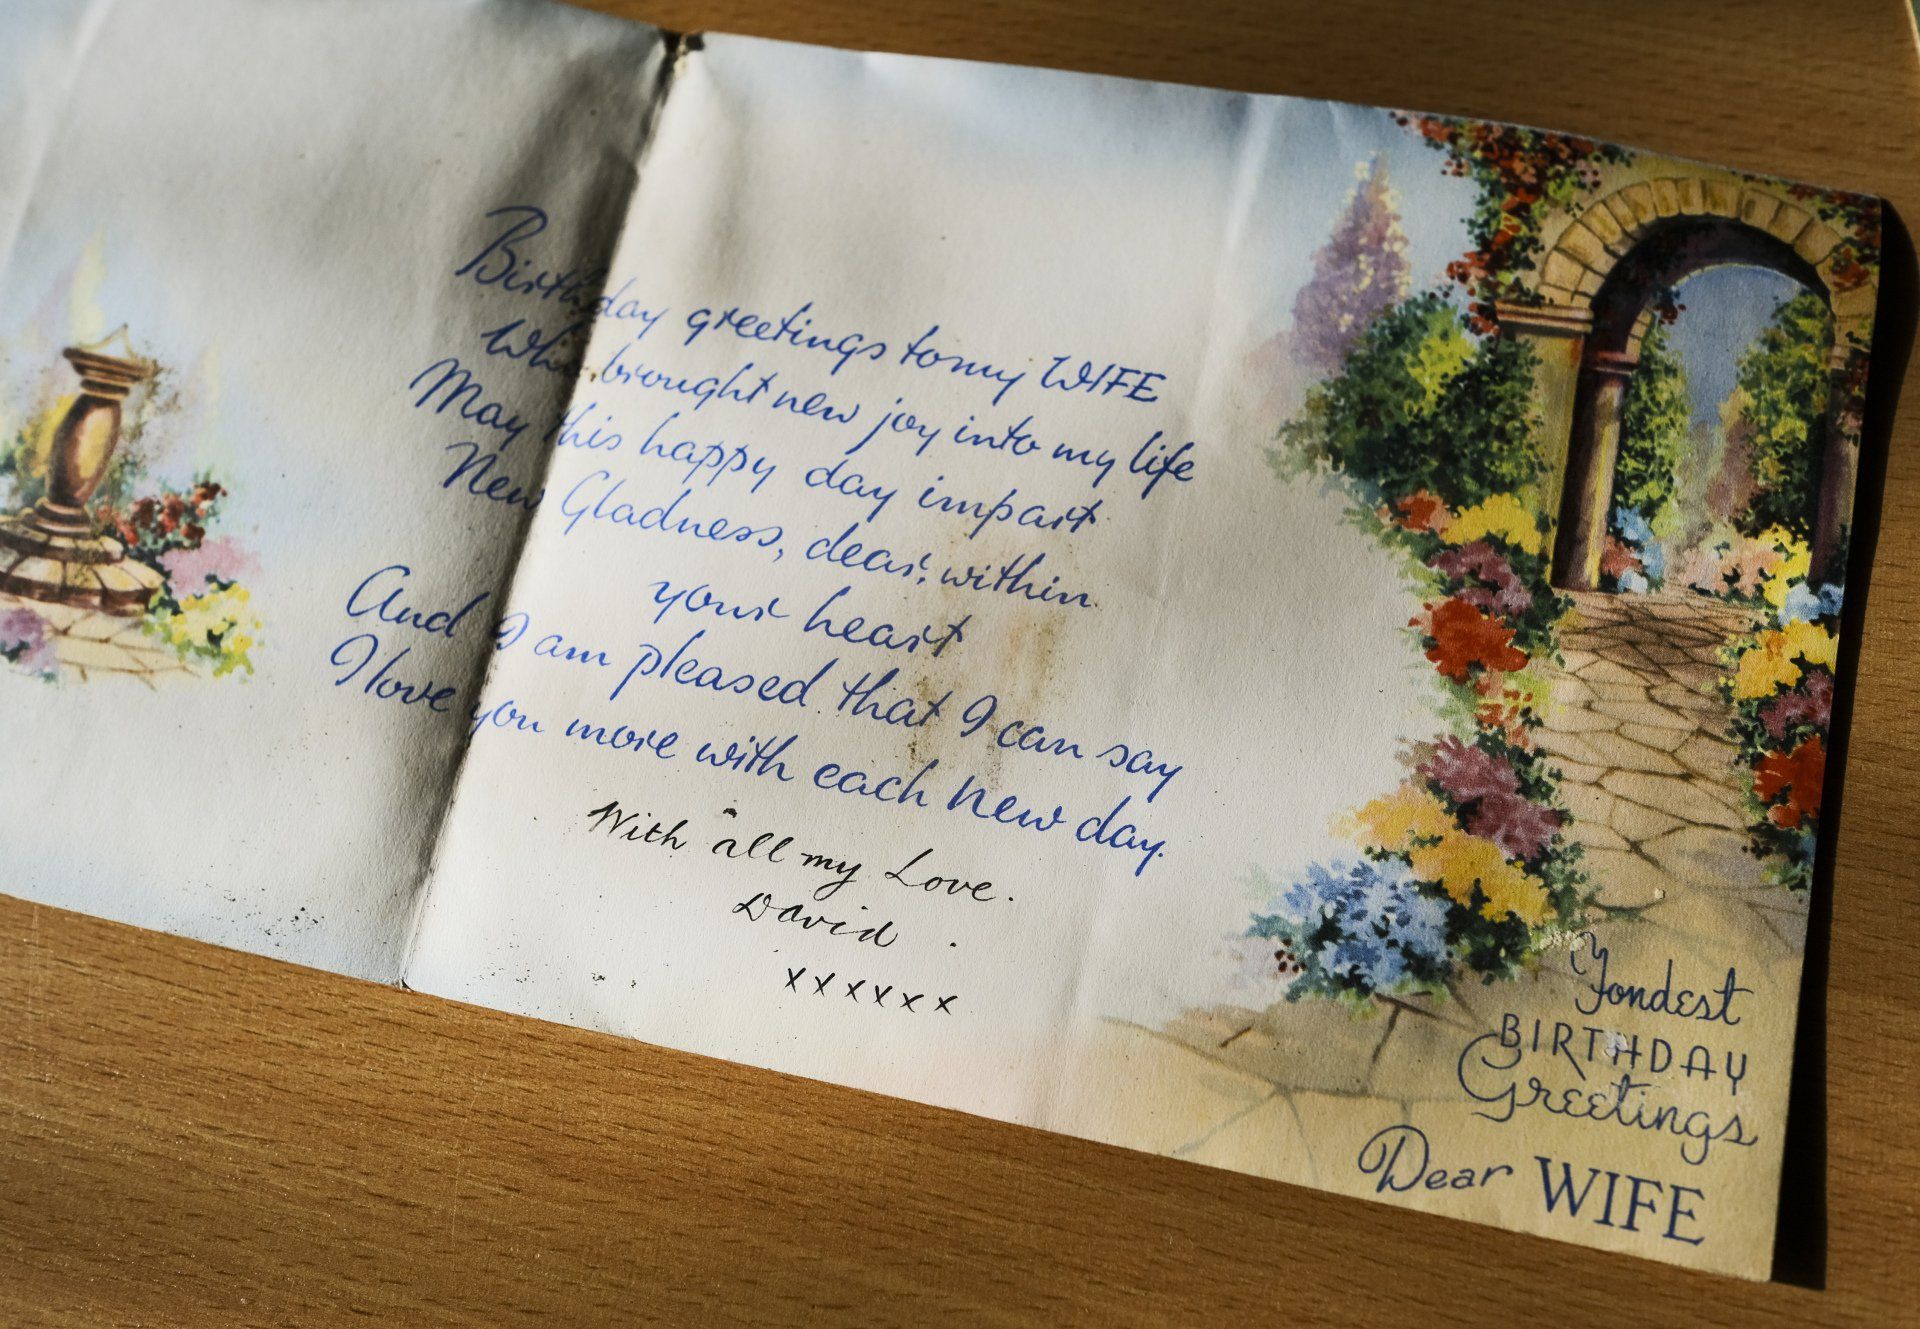 Birthday greetings to my WIFE
Who brought new joy into my life
May this happy day impart
New Gladness, dear, within
your heart
And I am pleased that I can say
I love you more with each new day.
With all my Love.
David.
xxxxxx
Fondest
BIRTHDAY
Greetings
Dear WIFE